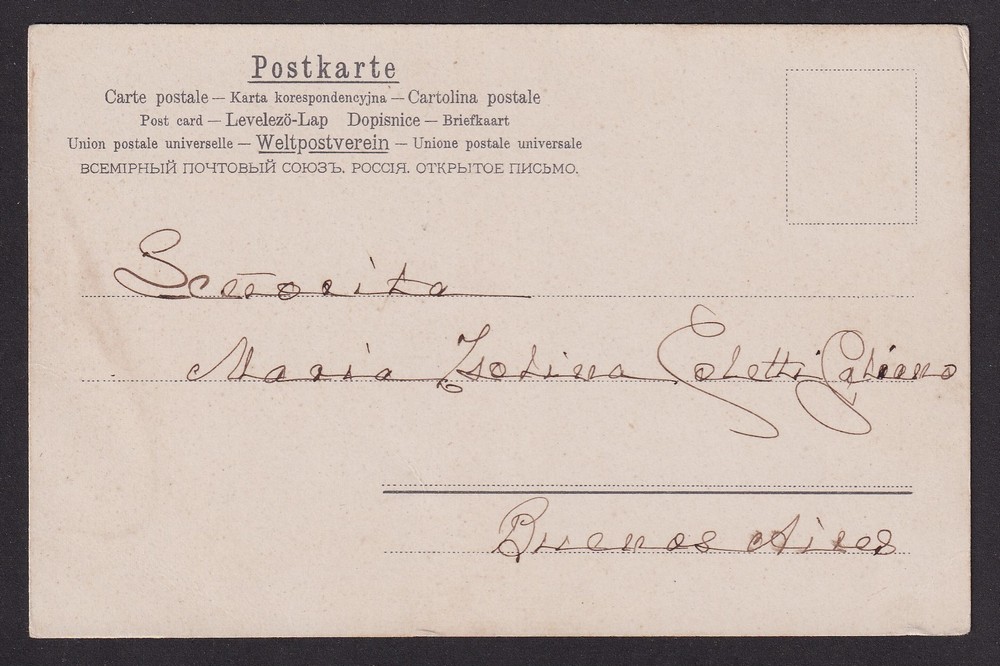 Postkarte
Carte postale — Karta korespondencyjna — Cartolina postale
Post card — Levelezö-Lap Dopisnice — Briefkaart
Union postale universelle — Weltpostverein — Unione postale universale
ВСЕМІРНЫЙ ПОЧТОВЫЙ СОЮЗЪ. РОССІЯ. ОТКРЫТОЕ ПИСЬМО.
Señorita
Maria Isolina Coletti
Buenos Aires